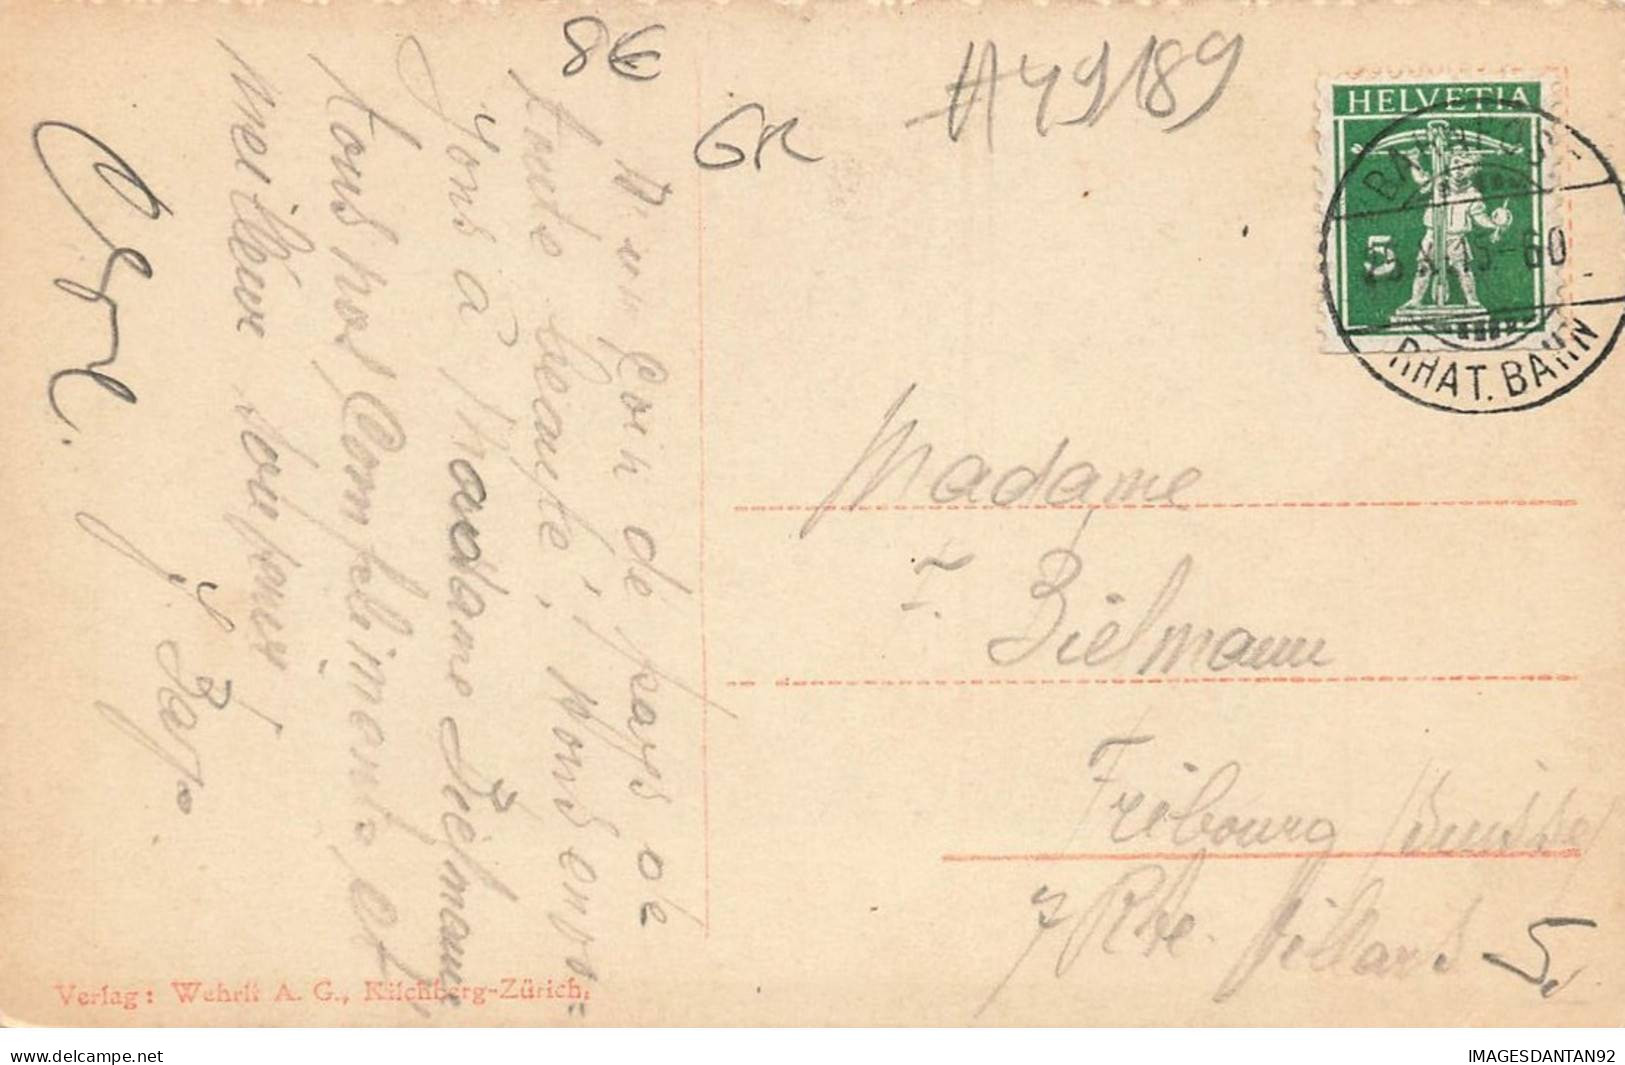 8€
GR
A49189
HELVETIA
5
RHAT. BAHN
D'un Coin de pays de
toute beauté, nous envo=
yons à Madame Bielmann,
tous nos Compliments et
meilleur
Madame
F. Bielmann
Fribourg (Suisse)
7 Rte Villars
Verlag: Wehrli A. G., Kilchberg-Zürich.
www.delcampe.net
IMAGESDANTAN92